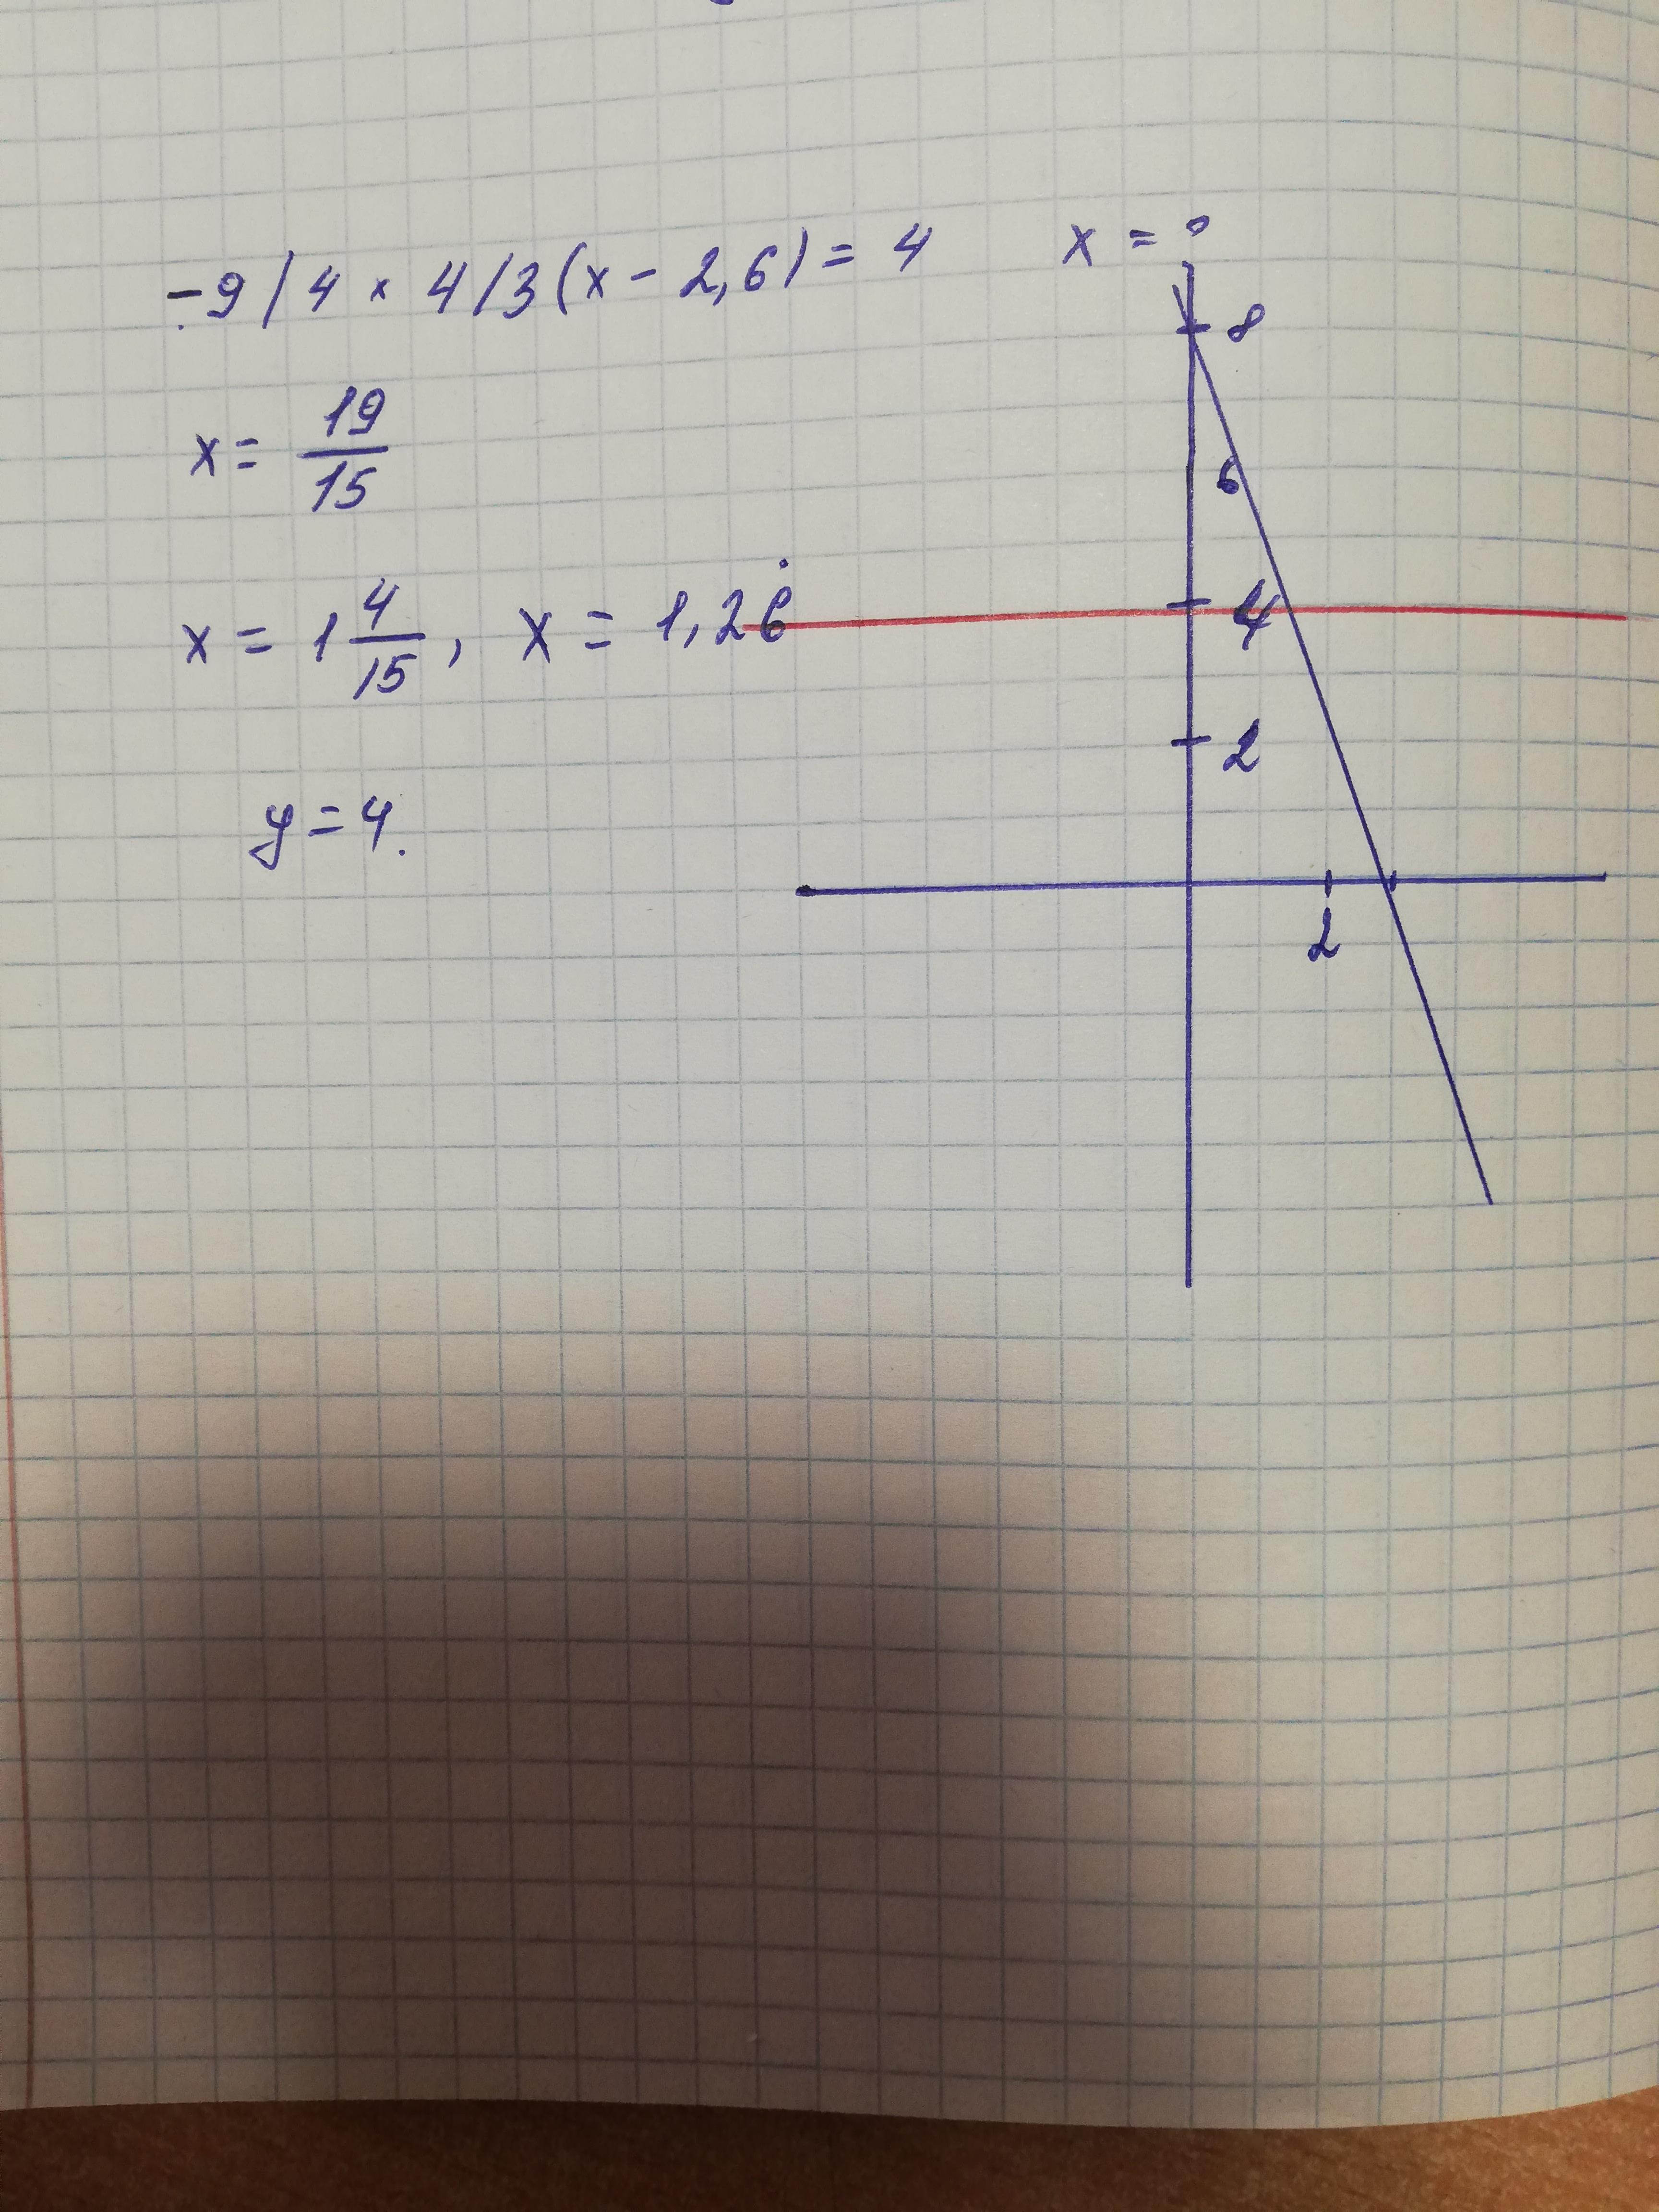 -9/4 × 4/3(x - 2,6) = 4 x = ?
x = 19/15
x = 1 4/15, x = 1,26̇
y = 4.
8
6
4
2
2